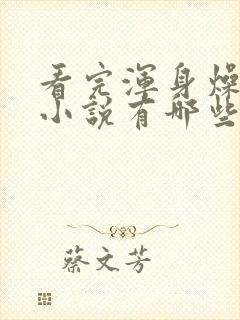 看完渾身燥
小說有哪些
蔡文芳